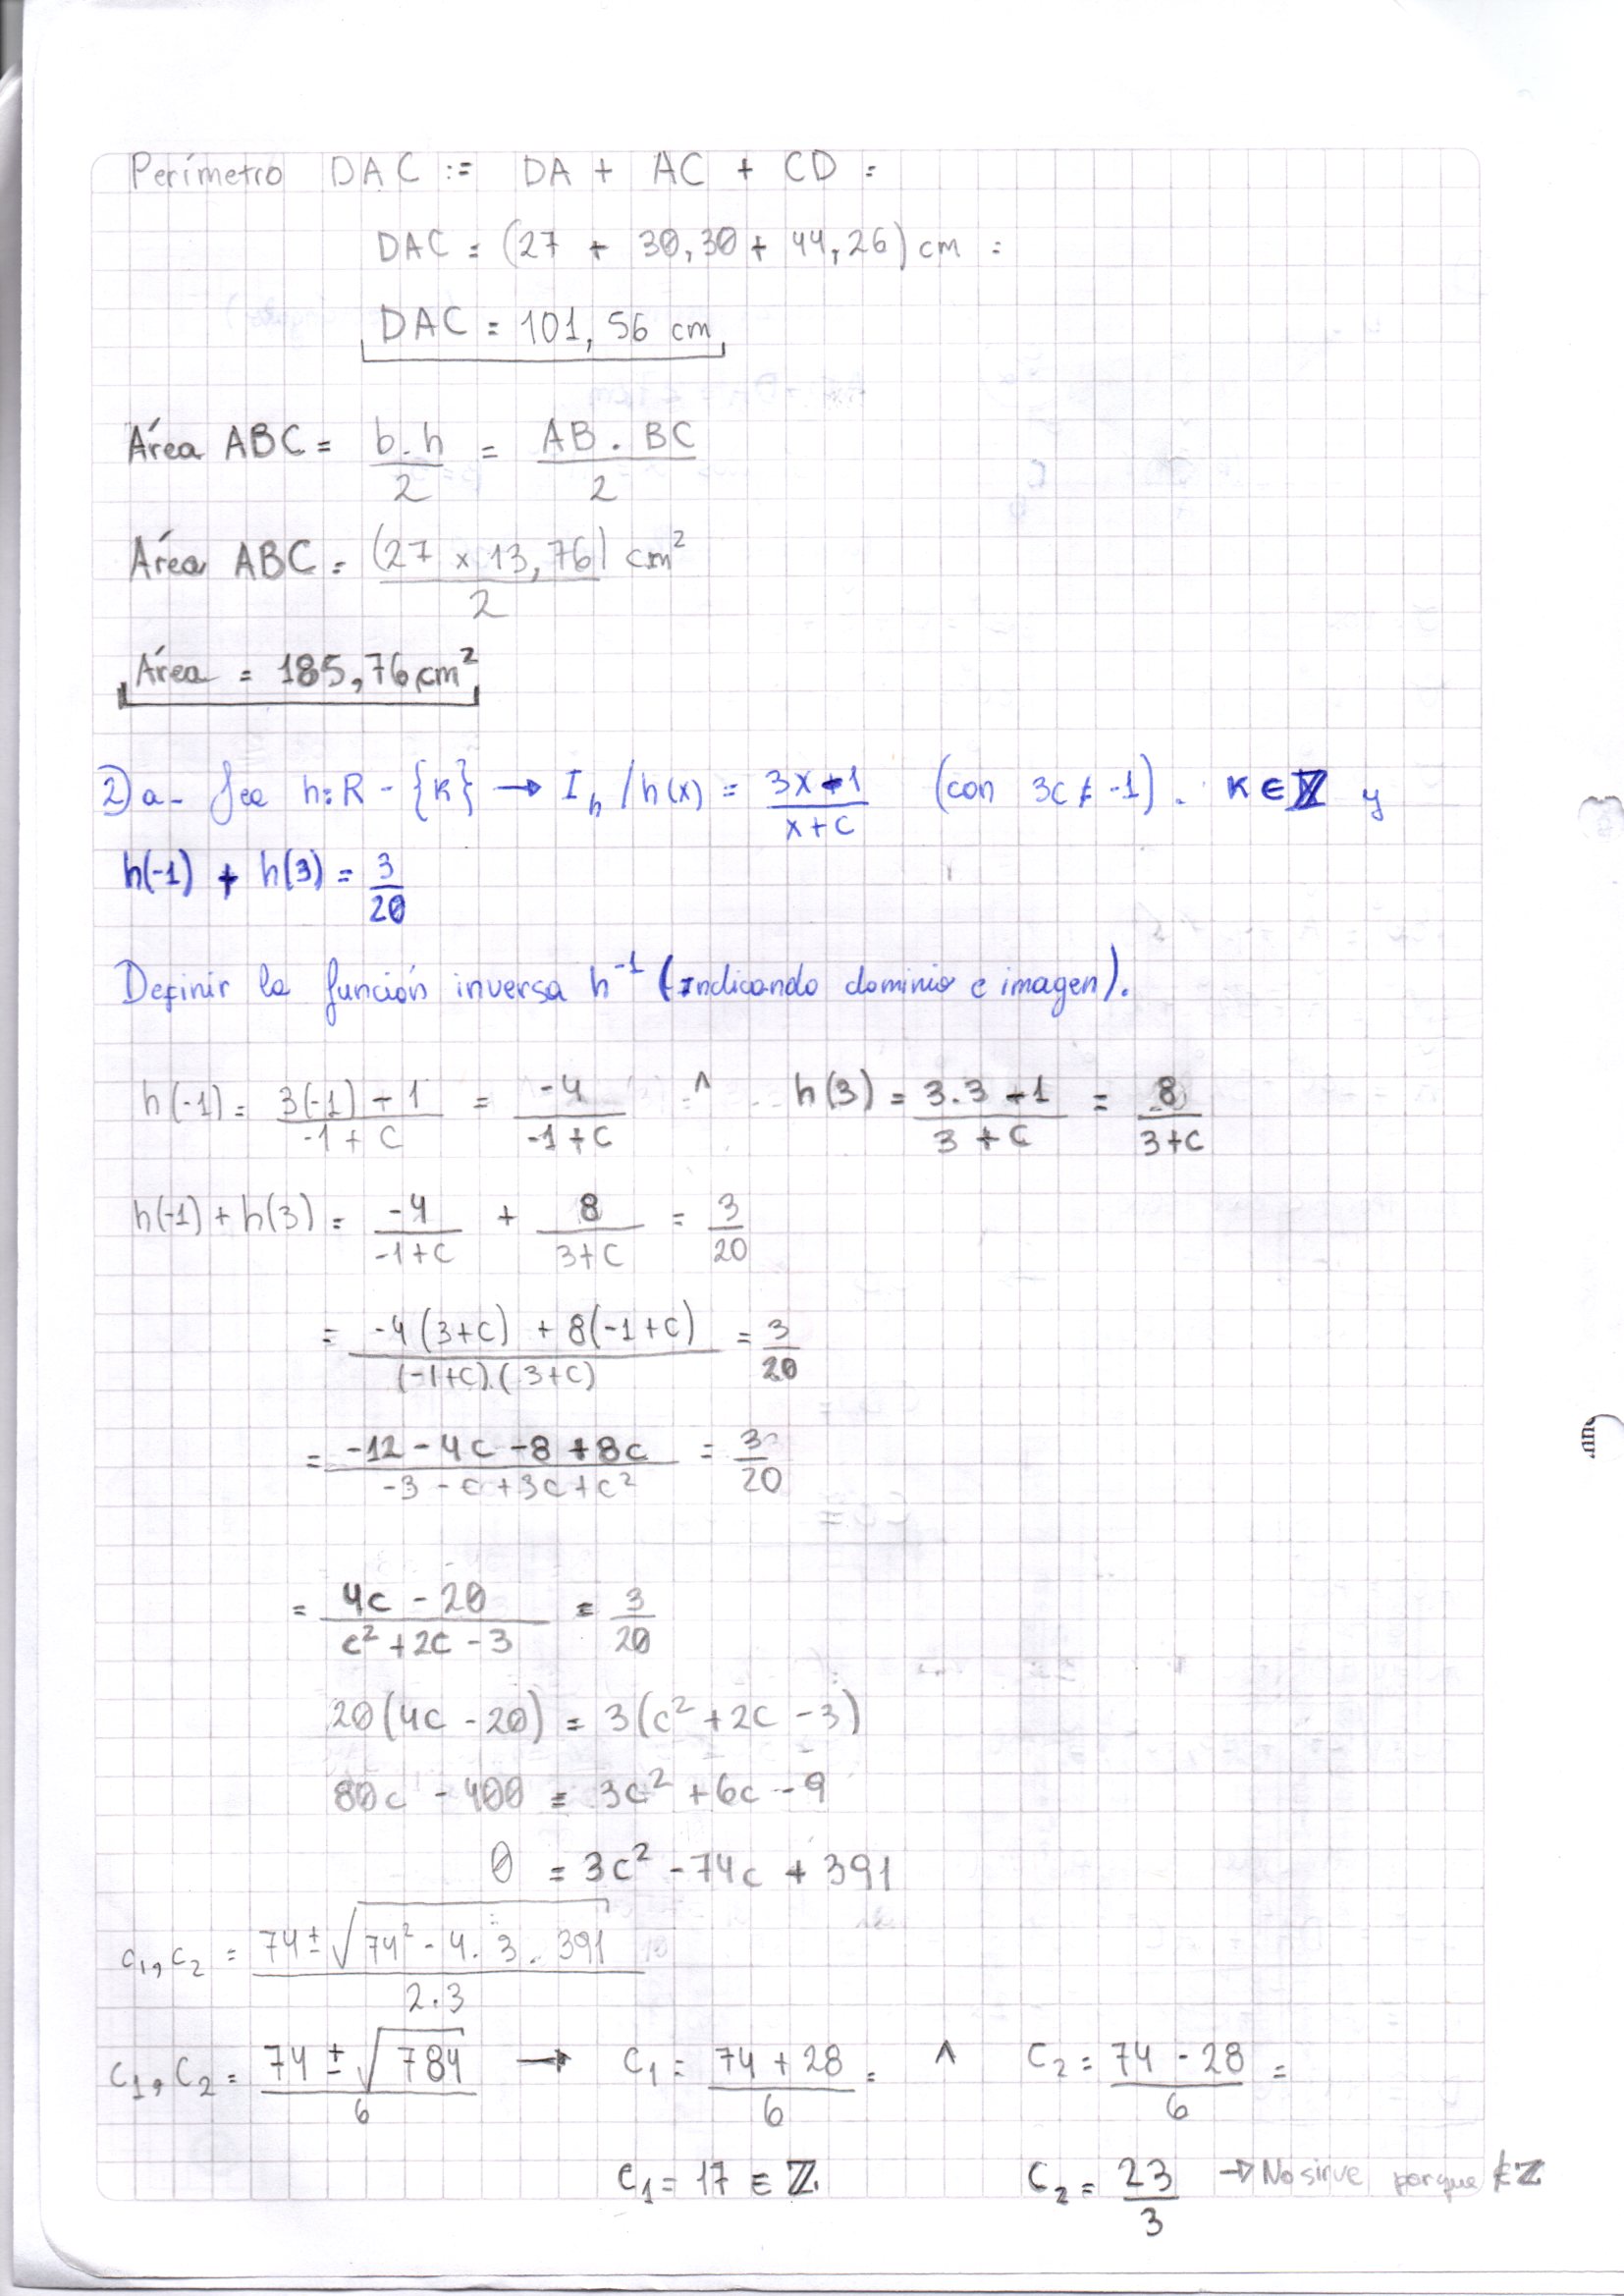 Perímetro DAC := DA + AC + CD =
DAC = (27 + 30,30 + 44,26) cm =
DAC = 101,56 cm
Área ABC = b.h/2 = AB . BC/2
Área ABC = (27 x 13,76) cm²/2
Área = 185,76 cm²
2) a- Sea h: R - {K} → I_h / h(x) = 3x-1/x+c (con 3c ≠ -1). K ∈ Z y
h(-1) + h(3) = 3/20
Definir la función inversa h⁻¹ (indicando dominio e imagen).
h(-1) = 3(-1) - 1/-1 + C = -4/-1+C ∧ h(3) = 3.3 - 1/3 + C = 8/3+C
h(-1) + h(3) = -4/-1+C + 8/3+C = 3/20
= -4(3+C) + 8(-1+C)/(-1+C).(3+C) = 3/20
= -12 - 4c - 8 + 8c/-3 - c + 3c + c² = 3/20
= 4c - 20/c² + 2c - 3 = 3/20
20(4c - 20) = 3(c² + 2c - 3)
80c - 400 = 3c² + 6c - 9
0 = 3c² - 74c + 391
c₁, c₂ = 74 ± √74² - 4. 3. 391/2.3
c₁, c₂ = 74 ± √784/6 → C₁ = 74 + 28/6 = ∧ C₂ = 74 - 28/6 =
C₁ = 17 ∈ Z. C₂ = 23/3 → No sirve porque ∉ Z